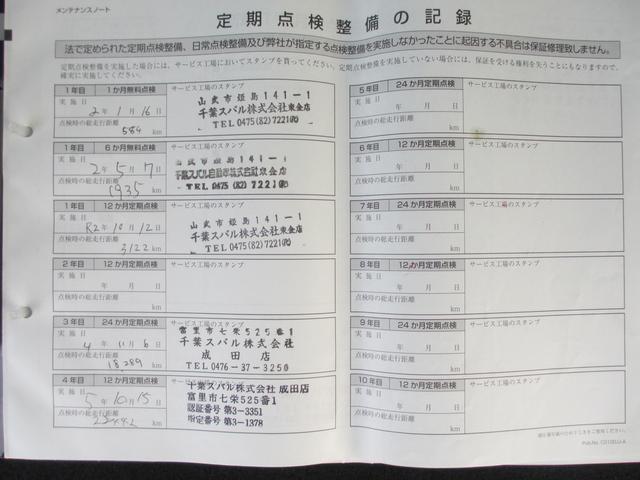 メンテナンスノート
定期点検整備の記録
法で定められた定期点検整備、日常点検整備及び弊社が指定する点検整備を実施しなかったことに起因する不具合は保証修理致しません。
定期点検整備を実施した場合には、サービス工場においてスタンプを貰ってください。定期点検整備を実施していない場合には、保証を受ける権利を失うこともなりますので、
確実に実施してください。
1年目 1か月無料点検 サービス工場のスタンプ
実施日
2年 1月 16日
点検時の総走行距離
584 km
山武市姫島141-1
千葉スバル株式会社東金店
TEL 0475(82)7221㈹
1年目 6か月無料点検 サービス工場のスタンプ
実施日
2年 5月 7日
点検時の総走行距離
1935 km
山武市姫島141-1
千葉スバル自動車株式会社東金店
TEL 0475(82)7221㈹
1年目 12か月定期点検 サービス工場のスタンプ
実施日
R2年 10月 12日
点検時の総走行距離
3122 km
山武市姫島141-1
千葉スバル株式会社東金店
TEL 0475(82)7221㈹
2年目 12か月定期点検 サービス工場のスタンプ
実施日
年 月 日
点検時の総走行距離
km
3年目 24か月定期点検 サービス工場のスタンプ
実施日
4年 11月 6日
点検時の総走行距離
18,289 km
富里市七栄525番1
千葉スバル株式会社
成田店
TEL 0476-37-3250
4年目 12か月定期点検 サービス工場のスタンプ
実施日
5年 10月 15日
点検時の総走行距離
22442 km
千葉スバル株式会社 成田店
富里市七栄525番1
認証番号 第3-3351
指定番号 第3-1378
5年目 24か月定期点検 サービス工場のスタンプ
実施日
年 月 日
点検時の総走行距離
km
6年目 12か月定期点検 サービス工場のスタンプ
実施日
年 月 日
点検時の総走行距離
km
7年目 24か月定期点検 サービス工場のスタンプ
実施日
年 月 日
点検時の総走行距離
km
8年目 12か月定期点検 サービス工場のスタンプ
実施日
年 月 日
点検時の総走行距離
km
9年目 24か月定期点検 サービス工場のスタンプ
実施日
年 月 日
点検時の総走行距離
km
10年目 12か月定期点検 サービス工場のスタンプ
実施日
年 月 日
点検時の総走行距離
km